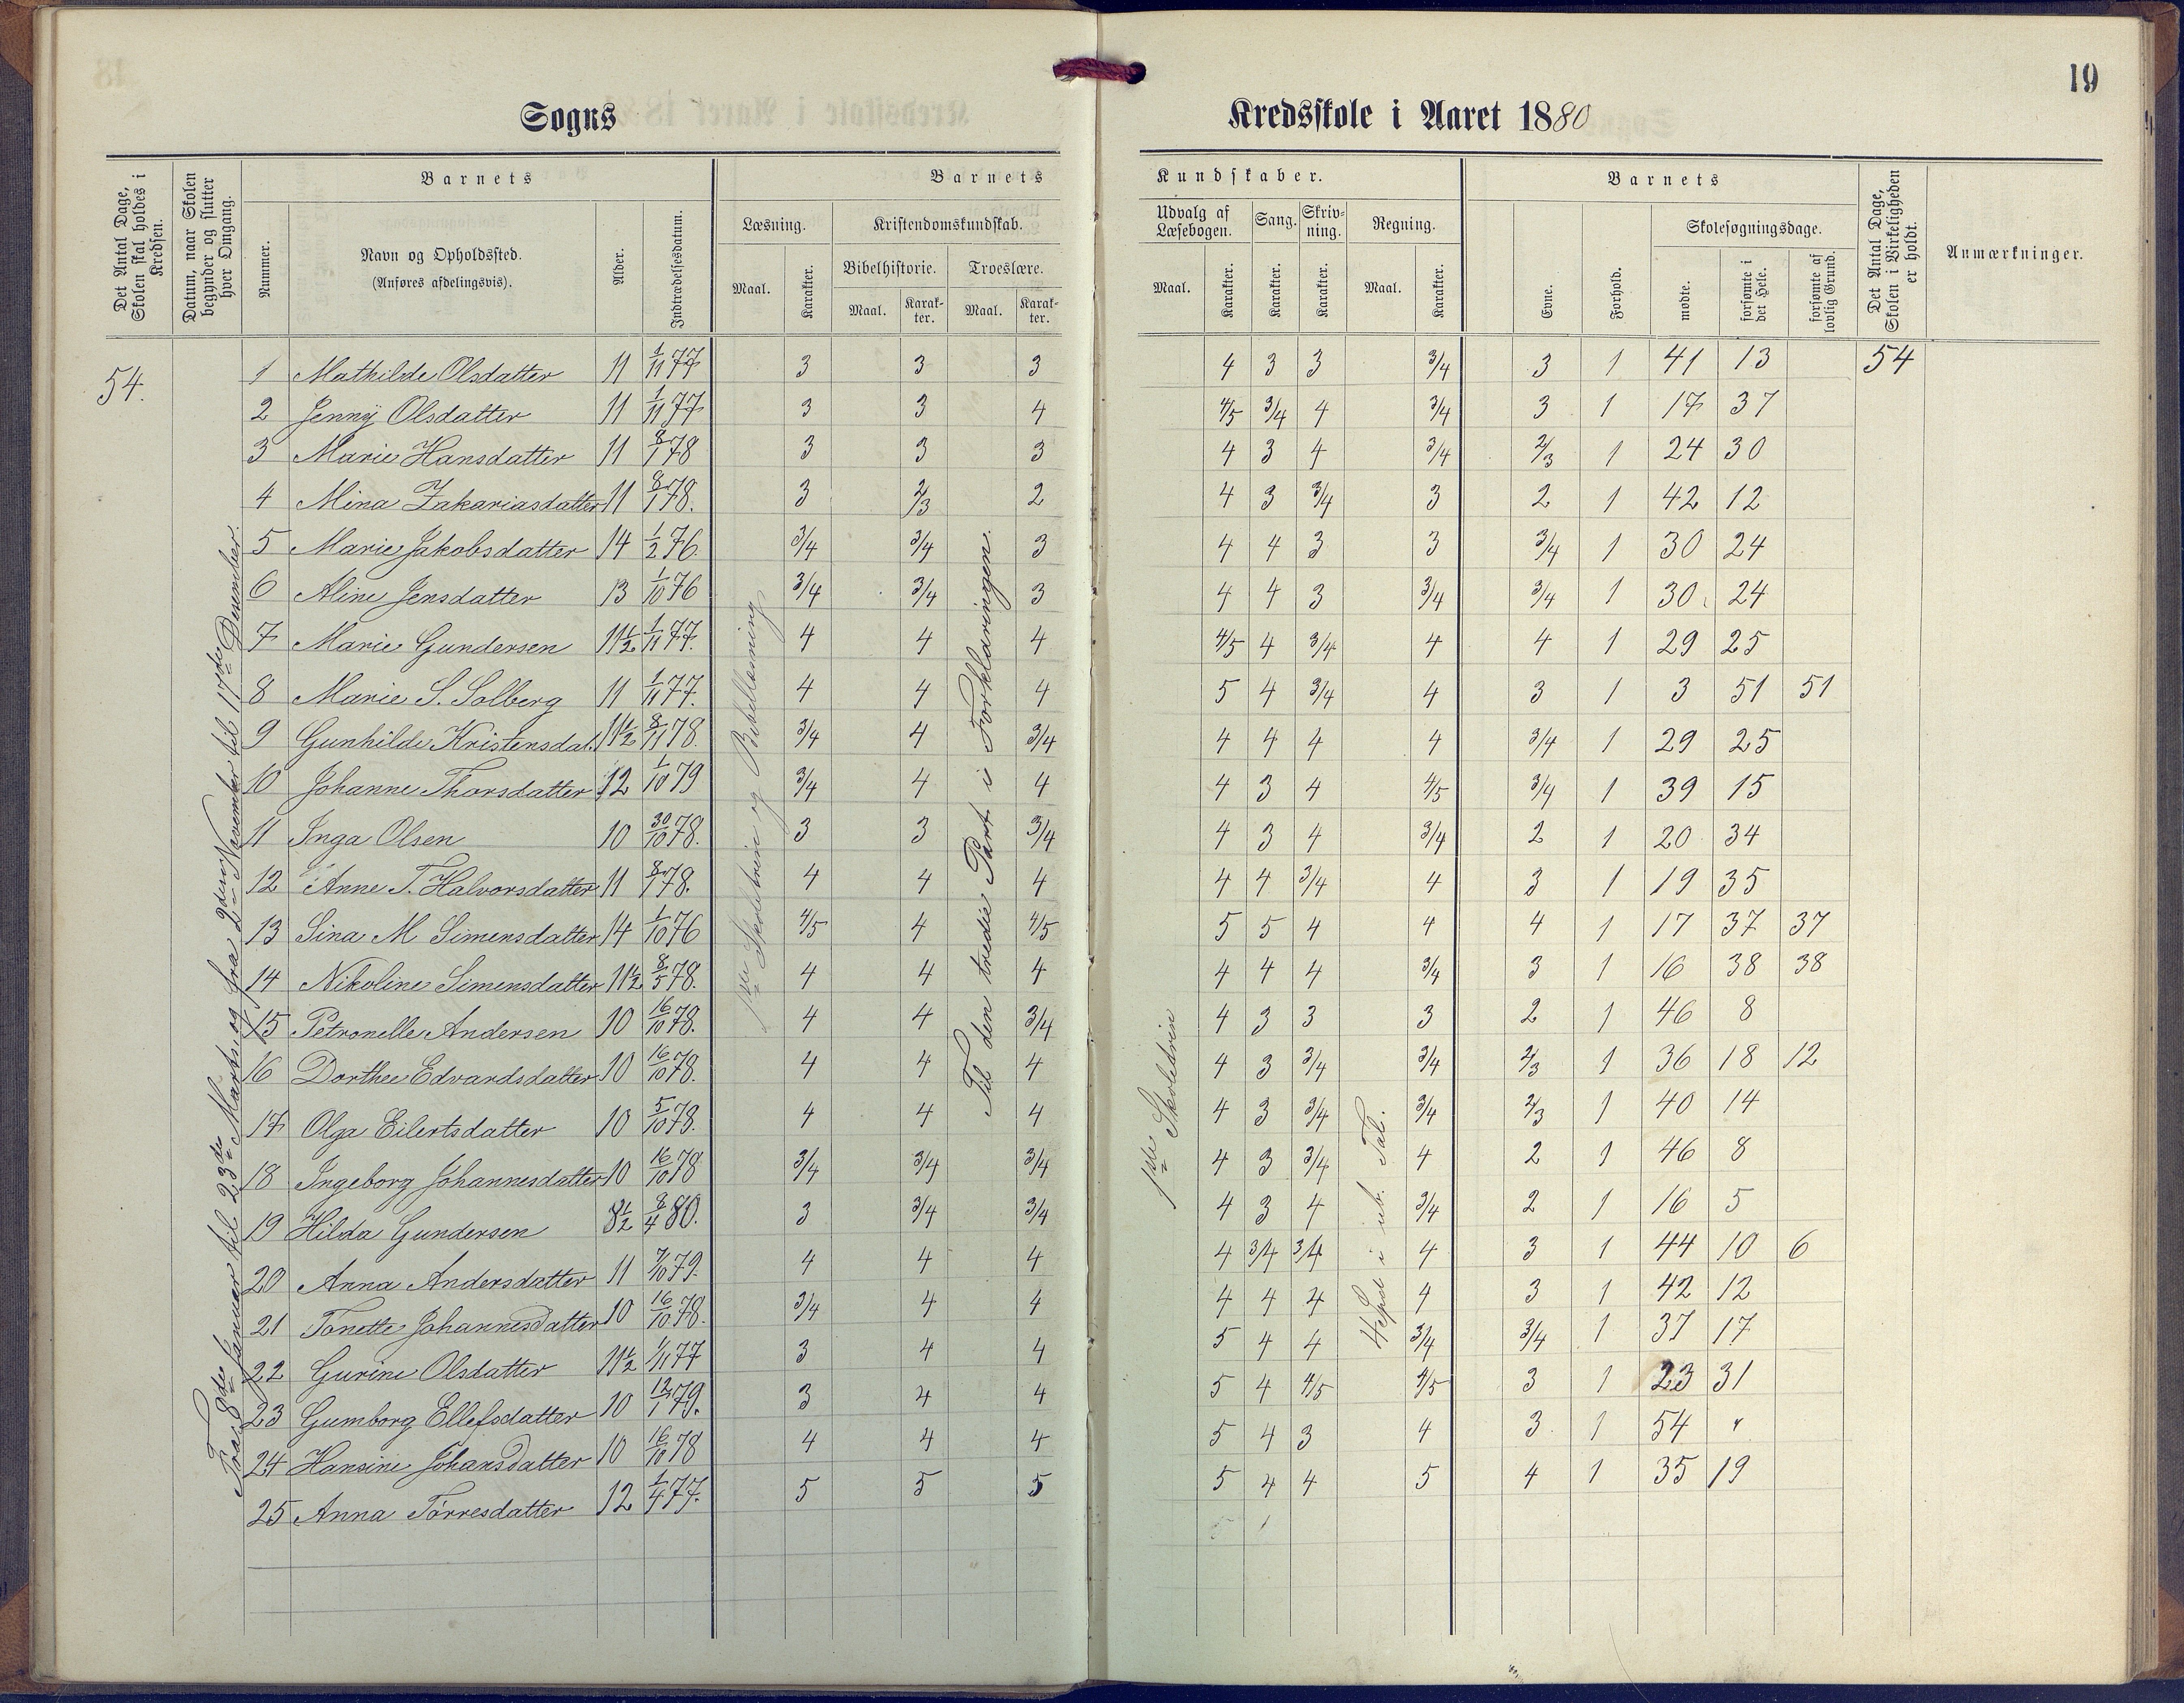 19
Sogns Kredsskole i Aaret 1880
Det Antal Dage, Skolen skal holdes i Kredsen.
Datum, naar Skolen begynder og slutter hver Omgang.
Barnets
Nummer.
Navn og Opholdssted.
(Anføres afdelingsvis).
Alder.
Indtrædelsesdatum.
Barnets Kundskaber.
Læsning.
Maal.
Karakter.
Kristendomskundskab.
Bibelhistorie.
Maal.
Karakter.
Troeslære.
Maal.
Karakter.
Udvalg af Læsebogen.
Maal.
Karakter.
Sang.
Karakter.
Skrivning.
Karakter.
Regning.
Maal.
Karakter.
Barnets
Evne.
Forhold.
Skolesøgningsdage.
mødte.
forsømte i det Hele.
forsømte af lovlig Grund.
Det Antal Dage, Skolen i Virkeligheden er holdt.
Anmærkninger.
54.
Fra 8de Januar til 23de Marts og fra 2den November til 17de Desember.
1de og Bibellæsning
Til den tredie Part i Forklaringen.
1ste Skoletrin
4 Spec. i ub. Tal.
1 Mathilde Olsdatter 11 1/11 77 3 3 3 4 3 3 3/4 3 1 41 13 54
2 Jenny Olsdatter 11 1/11 77 3 3 4 4/5 3/4 4 3/4 3 1 17 37
3 Marie Hansdatter 11 8/1 78 3 3 3 4 3 4 3/4 2/3 1 24 30
4 Mina Zakariasdatter 11 8/1 78. 3 2/3 2 4 3 3/4 3 2 1 42 12
5 Marie Jakobsdatter 14 1/2 76. 3/4 3/4 3 4 4 3 3 3/4 1 30 24
6 Aline Jensdatter 13 1/10 76 3/4 3/4 3 4 4 3 3/4 3/4 1 30 24
7 Marie Gundersen 11 1/2 1/11 77. 4 4 4 4/5 4 3/4 4 4 1 29 25
8 Marie S. Solberg 11 1/11 77. 4 4 4 5 4 3/4 4 3 1 3 51 51
9 Gunhilde Kristensdat. 11 1/2 8/11 78. 3/4 4 3/4 4 4 4 4 3/4 1 29 25
10 Johanne Thorsdatter 12 1/10 79 3/4 4 4 4 3 4 4/5 3/4 1 39 15
11 Inga Olsen 10 30/10 78. 3 3 3/4 4 3 4 3/4 2 1 20 34
12 Anne T. Halvorsdatter 11 8/1 78. 4 4 4 4 4 3/4 4 3 1 19 35
13 Sina M Simensdatter 14 1/10 76 4/5 4 4/5 5 5 4 4 4 1 17 37 37
14 Nikoline Simensdatter 11 1/2 8/5 78. 4 4 4 4 4 4 3/4 3 1 16 38 38
15 Petronelle Andersen 10 16/10 78. 4 4 3/4 4 3 3 3 2 1 46 8
16 Dorthee Edvardsdatter 10 16/10 78. 4 4 4 4 3 3/4 3/4 2/3 1 36 18 12
17 Olga Eilertsdatter 10 5/10 78. 4 4 4 4 3 3/4 3/4 2/3 1 40 14
18 Ingeborg Johannesdatter 10 16/10 78 3/4 3/4 3/4 4 3 3/4 4 2 1 46 8
19 Hilda Gundersen 8 1/2 8/4 80. 3 3/4 3/4 4 3 4 3/4 2 1 16 5
20 Anna Andersdatter 11 7/10 79. 4 4 4 4 3/4 3/4 4 3 1 44 10 6
21 Tonette Johannesdatter 10 16/10 78. 3/4 4 4 4 4 4 4 3 1 42 12
22 Gurine Olsdatter 11 1/2 1/11 77 3 4 4 5 4 4 3/4 3/4 1 37 17
23 Gumborg Ellefsdatter 10 12/1 79. 3 4 4 5 4 4/5 4/5 3 1 23 31
24 Hansine Johansdatter 10 16/10 78 4 4 4 5 4 3 4 3 1 54 "
25 Anna Torresdatter 12 1/4 77. 5 5 5 5 4 4 5 4 1 35 19